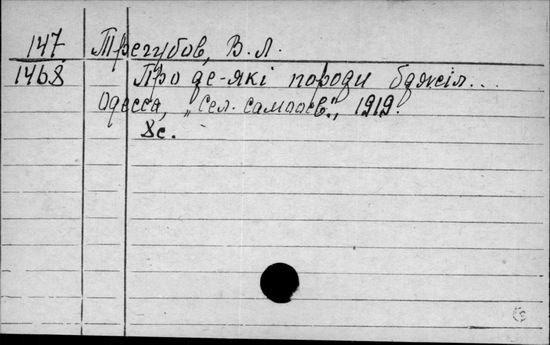 147 Трегубов, В. Л.
1468 Про де-які породи бджіл...
Одесса, „Сел. самоосв.", 1919.
8с.